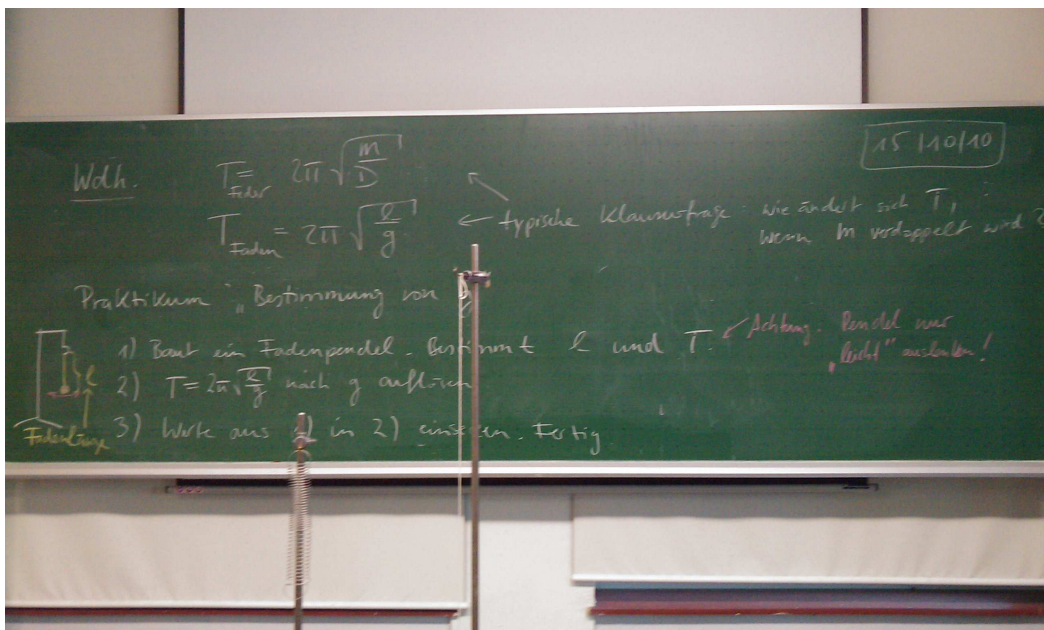 15/10/10
Wdh. T_Feder = 2π √(m/D)
T_Faden = 2π √(l/g) ← typische Klausurfrage wie ändert sich T,
wenn m verdoppelt wird?
Praktikum „Bestimmung von g
1) Baut ein Fadenpendel. Bestimmt l und T. ↙ Achtung. Pendel nur
„leicht" auslenken!
2) T = 2π √(l/g) nach g auflösen
3) Werte aus 1) in 2) einsetzen. Fertig
l
Fadenlänge